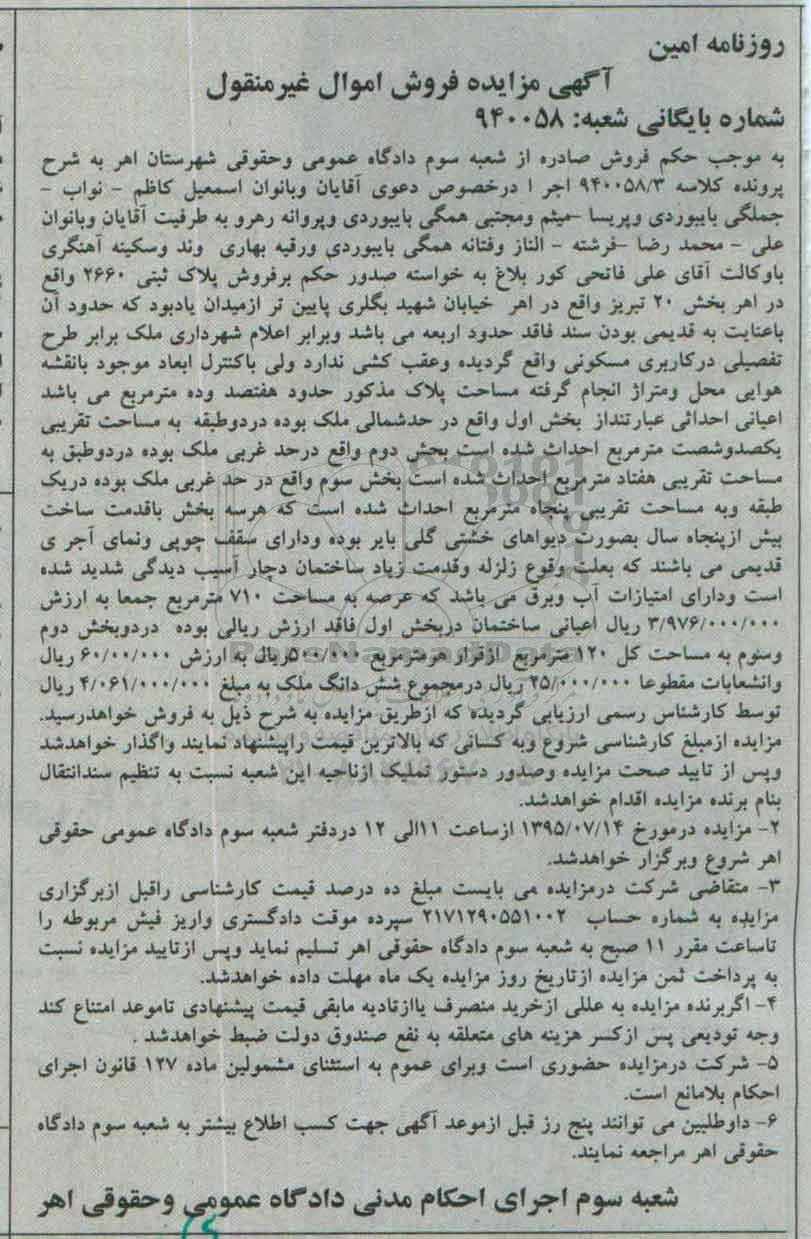 روزنامه امین
آگهی مزایده فروش اموال غیرمنقول
شماره بایگانی شعبه: ۹۴۰۰۵۸
به موجب حکم فروش صادره از شعبه سوم دادگاه عمومی وحقوقی شهرستان اهر به شرح
پرونده کلاسه ۹۴۰۰۵۸/۳ اجر ا درخصوص دعوی آقایان وبانوان اسمعیل کاظم - نواب -
جملگی بایبوردی وپریسا -میثم ومجتبی همگی بایبوردی وپروانه رهرو به طرفیت آقایان وبانوان
علی - محمد رضا -فرشته - الناز وفتانه همگی بایبوردی ورقیه بهاری وند وسکینه آهنگری
باوکالت آقای علی فاتحی کور بلاغ به خواسته صدور حکم برفروش پلاک ثبتی ۲۶۶۰ واقع
در اهر بخش ۲۰ تبریز واقع در اهر خیابان شهید بگلری پایین تر ازمیدان یادبود که حدود آن
باعنایت به قدیمی بودن سند فاقد حدود اربعه می باشد وبرابر اعلام شهرداری ملک برابر طرح
تفصیلی درکاربری مسکونی واقع گردیده وعقب کشی ندارد ولی باکنترل ابعاد موجود بانقشه
هوایی محل ومتراژ انجام گرفته مساحت پلاک مذکور حدود هفتصد وده مترمربع می باشد
اعیانی احداثی عبارتنداز بخش اول واقع در حدشمالی ملک بوده دردوطبقه به مساحت تقریبی
یکصدوشصت مترمربع احداث شده است بخش دوم واقع درحد غربی ملک بوده دردوطبق به
مساحت تقریبی هفتاد مترمربع احداث شده است بخش سوم واقع در حد غربی ملک بوده دریک
طبقه وبه مساحت تقریبی پنجاه مترمربع احداث شده است که هرسه بخش باقدمت ساخت
بیش ازپنجاه سال بصورت دیواهای خشتی گلی بایر بوده ودارای سقف چوبی ونمای آجر ی
قدیمی می باشند که بعلت وقوع زلزله وقدمت زیاد ساختمان دچار آسیب دیدگی شدید شده
است ودارای امتیازات آب وبرق می باشد که عرصه به مساحت ۷۱۰ مترمربع جمعا به ارزش
۳/۹۷۶/۰۰۰/۰۰۰ ریال اعیانی ساختمان دربخش اول فاقد ارزش ریالی بوده دردوبخش دوم
وسوم به مساحت کل ۱۲۰ مترمربع ازقرار هرمترمربع ۵۰۰/۰۰۰ریال به ارزش ۶۰/۰۰/۰۰۰ ریال
وانشعابات مقطوعا ۲۵/۰۰۰/۰۰۰ ریال درمجموع شش دانگ ملک به مبلغ ۴/۰۶۱/۰۰۰/۰۰۰ ریال
توسط کارشناس رسمی ارزیابی گردیده که ازطریق مزایده به شرح ذیل به فروش خواهدرسید.
مزایده ازمبلغ کارشناسی شروع وبه کسانی که بالاترین قیمت راپیشنهاد نمایند واگذار خواهدشد
وپس از تایید صحت مزایده وصدور دستور تملیک ازناحیه این شعبه نسبت به تنظیم سندانتقال
بنام برنده مزایده اقدام خواهدشد.
۲- مزایده درمورخ ۱۳۹۵/۰۷/۱۴ ازساعت ۱۱الی ۱۲ دردفتر شعبه سوم دادگاه عمومی حقوقی
اهر شروع وبرگزار خواهدشد.
۳- متقاضی شرکت درمزایده می بایست مبلغ ده درصد قیمت کارشناسی راقبل ازبرگزاری
مزایده به شماره حساب ۲۱۷۱۲۹۰۵۵۱۰۰۲ سپرده موقت دادگستری واریز فیش مربوطه را
تاساعت مقرر ۱۱ صبح به شعبه سوم دادگاه حقوقی اهر تسلیم نماید وپس ازتایید مزایده نسبت
به پرداخت ثمن مزایده ازتاریخ روز مزایده یک ماه مهلت داده خواهدشد.
۴- اگربرنده مزایده به عللی ازخرید منصرف یاازتادیه مابقی قیمت پیشنهادی تاموعد امتناع کند
وجه تودیعی پس ازکسر هزینه های متعلقه به نفع صندوق دولت ضبط خواهدشد .
۵- شرکت درمزایده حضوری است وبرای عموم به استثنای مشمولین ماده ۱۲۷ قانون اجرای
احکام بلامانع است.
۶- داوطلبین می توانند پنج رز قبل ازموعد آگهی جهت کسب اطلاع بیشتر به شعبه سوم دادگاه
حقوقی اهر مراجعه نمایند.
شعبه سوم اجرای احکام مدنی دادگاه عمومی وحقوقی اهر